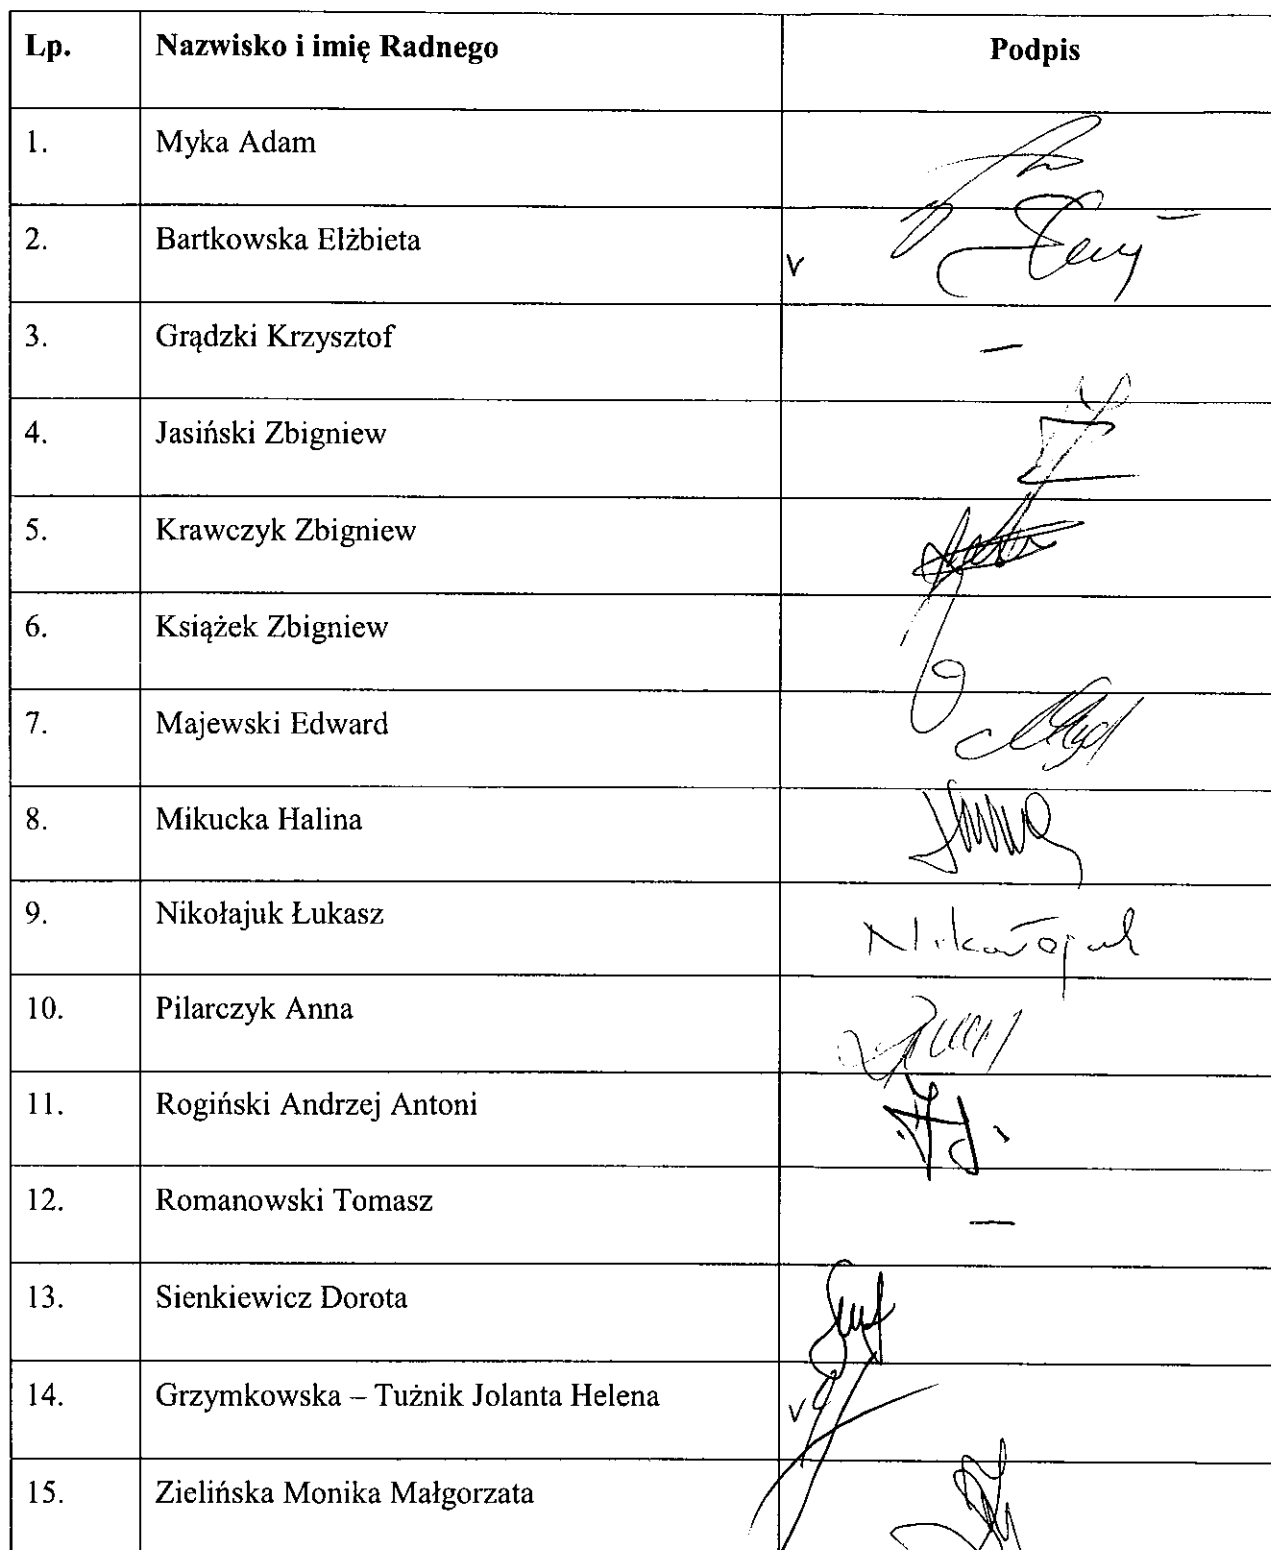 Lp. Nazwisko i imię Radnego Podpis
1. Myka Adam
2. Bartkowska Elżbieta v
3. Grądzki Krzysztof –
4. Jasiński Zbigniew
5. Krawczyk Zbigniew
6. Książek Zbigniew
7. Majewski Edward
8. Mikucka Halina
9. Nikołajuk Łukasz Nikołajuk
10. Pilarczyk Anna
11. Rogiński Andrzej Antoni
12. Romanowski Tomasz –
13. Sienkiewicz Dorota
14. Grzymkowska – Tużnik Jolanta Helena v
15. Zielińska Monika Małgorzata